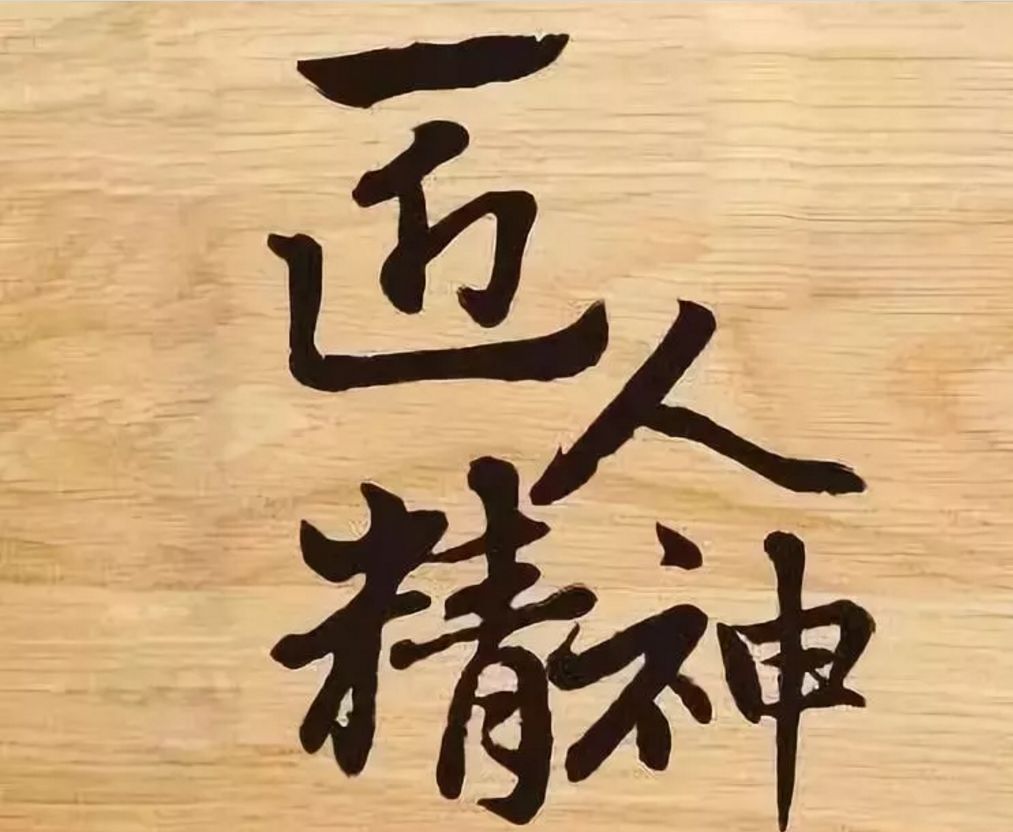 匠人
精神